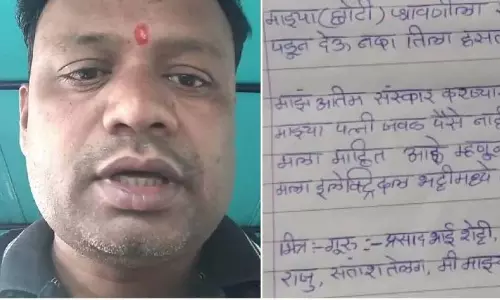 माझ्या (छोटी) श्रावणीला
पडून देऊ नका तिला हसत
माझं अंतिम संस्कार करण्या
माझ्या पत्नी जवळ पैसे नाही
मला माहित आहे म्हणून
मला इलेक्ट्रिकल भट्टीमध्ये
मित्र :- गुरु :- प्रसाद भाई शेट्टी,
राजु, संतोष तेलग, मी माझ्